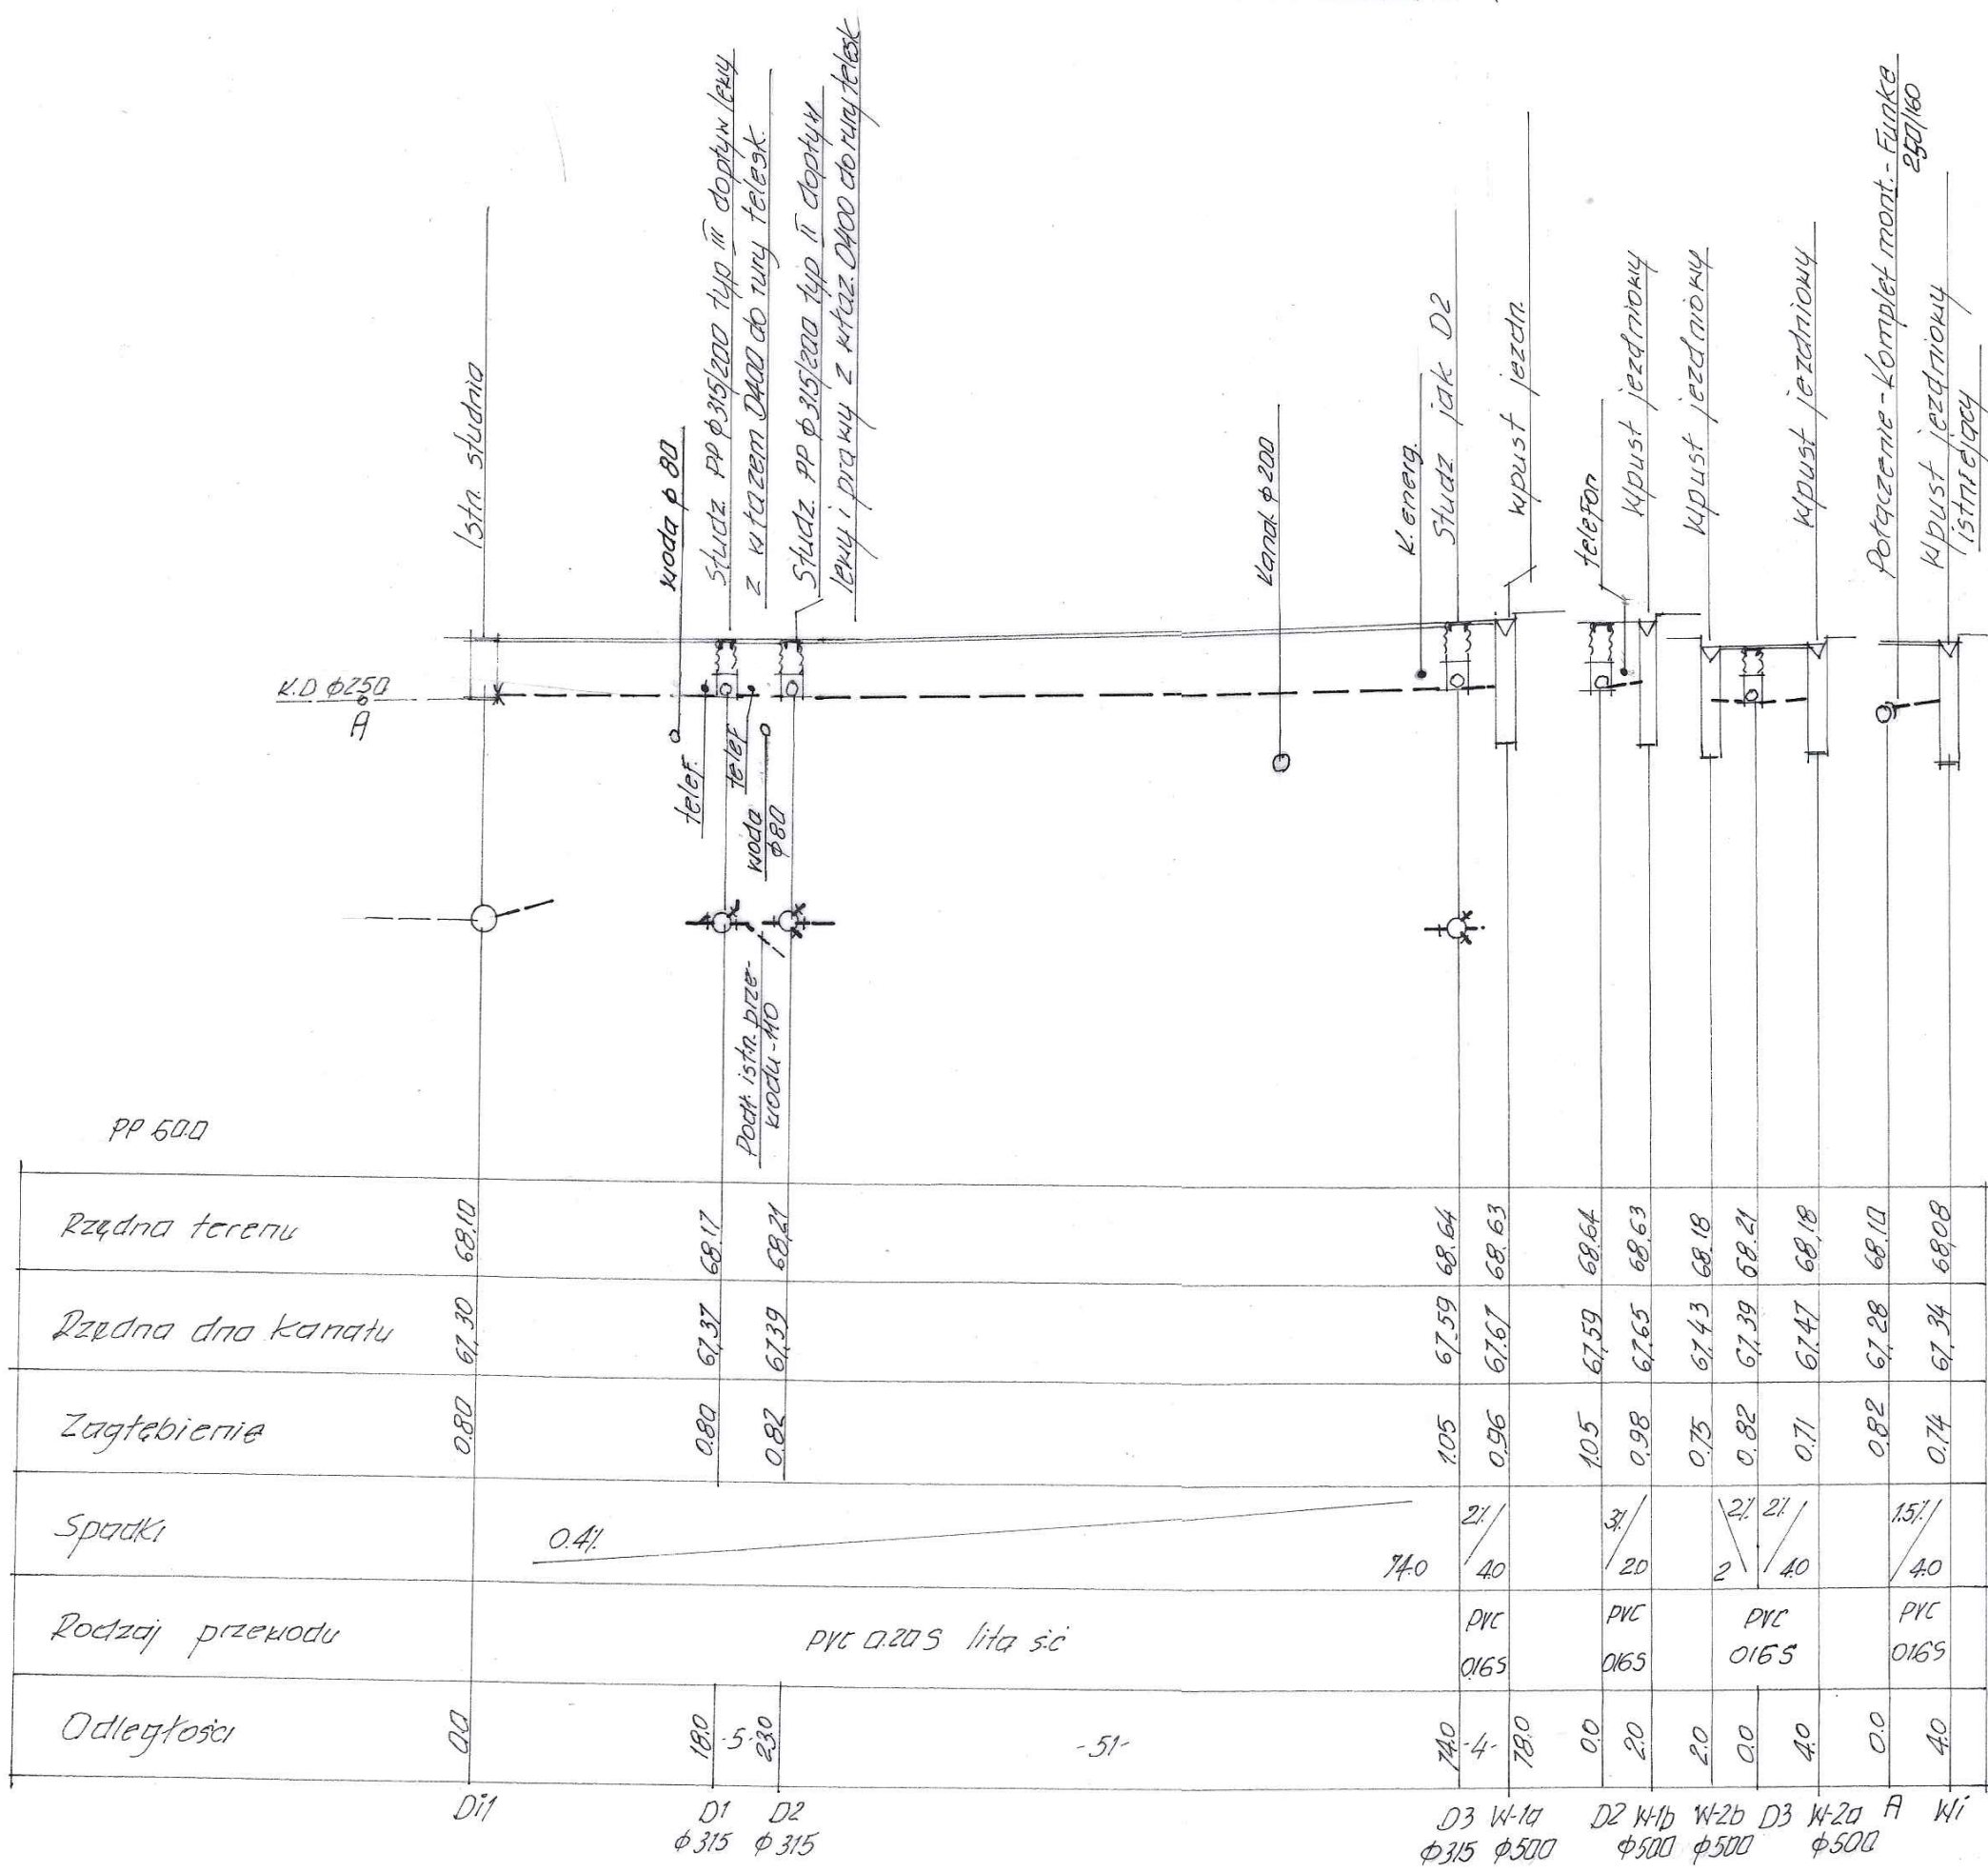 Istn. studnia
woda φ 80
Studz. PP φ315/200 typ III dopływ lewy
z włazem D400 do rury telesk.
Studz. PP φ315/200 typ II dopływ
lewy i prawy z właz. D400 do rury telesk
Kanał φ200
K. energ.
Studz. jak D2
Wpust jezdn.
telefon
Wpust jezdniowy
Wpust jezdniowy
Wpust jezdniowy
Połączenie - Komplet mont. - Funke
250/160
Wpust jezdniowy
istniejący
K.D φ250
A
telef.
telef
woda
φ80
Podł. istn. prze-
wodu - 110
PP 60.0
Rzędna terenu 68.10 68.17 68,21 68.64 68.63 68.64 68.63 68.18 68.21 68,18 68.10 68,08
Rzędna dna kanału 67.30 67,37 67,39 67.59 67.67 67.59 67.65 67.43 67.39 67.47 67.28 67.34
Zagłębienie 0.80 0.80 0.82 1.05 0.96 1.05 0.98 0.75 0.82 0.71 0.82 0.74
Spadki 0.4% 2% 3% 2% 2% 1.5%
74.0 4.0 2.0 2 4.0 4.0
Rodzaj przewodu PVC 0.20 S lita śc PVC PVC PVC PVC
0.16S 0.16S 0.16 S 0.16S
Odległości 0.0 18.0 -5- 23.0 -51- 74.0 -4- 78.0 0.0 2.0 2.0 0.0 4.0 0.0 4.0
Di1 D1 D2 D3 W-1a D2 W-1b W-2b D3 W-2a A Wi
φ315 φ315 φ315 φ500 φ500 φ500 φ500